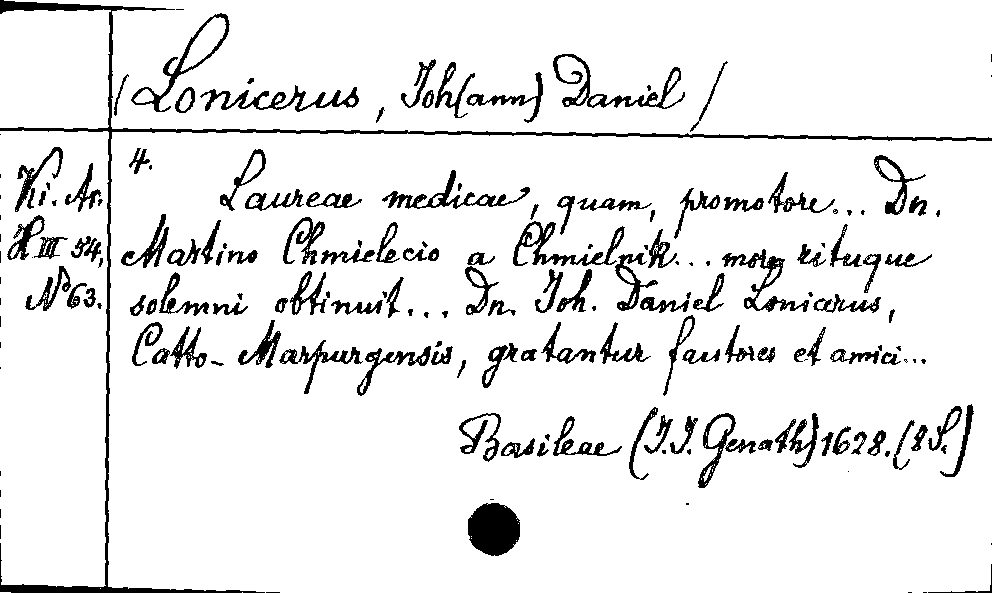 / Lonicerus, Joh(ann) Daniel /
Ki. Ar.
H III 54,
No 63.
4.
Laureae medicae, quam, promotore... Dn.
Martino Chmielecio a Chmielnik... more rituque
solemni obtinuit... Dn. Joh. Daniel Lonicerus,
Catto-Marpurgensis, gratantur fautores et amici...
Basileae (J.J. Genath) 1628. (8 S.)